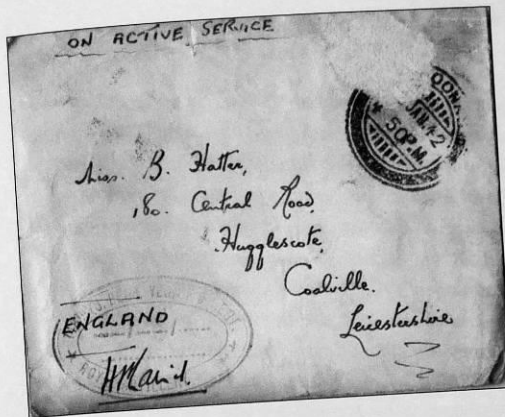 ON ACTIVE SERVICE
JAN. 42
50P.M.
Miss. B. Hatter,
180. Central Road,
Hugglescote,
Coalville.
Leicestershire
ENGLAND